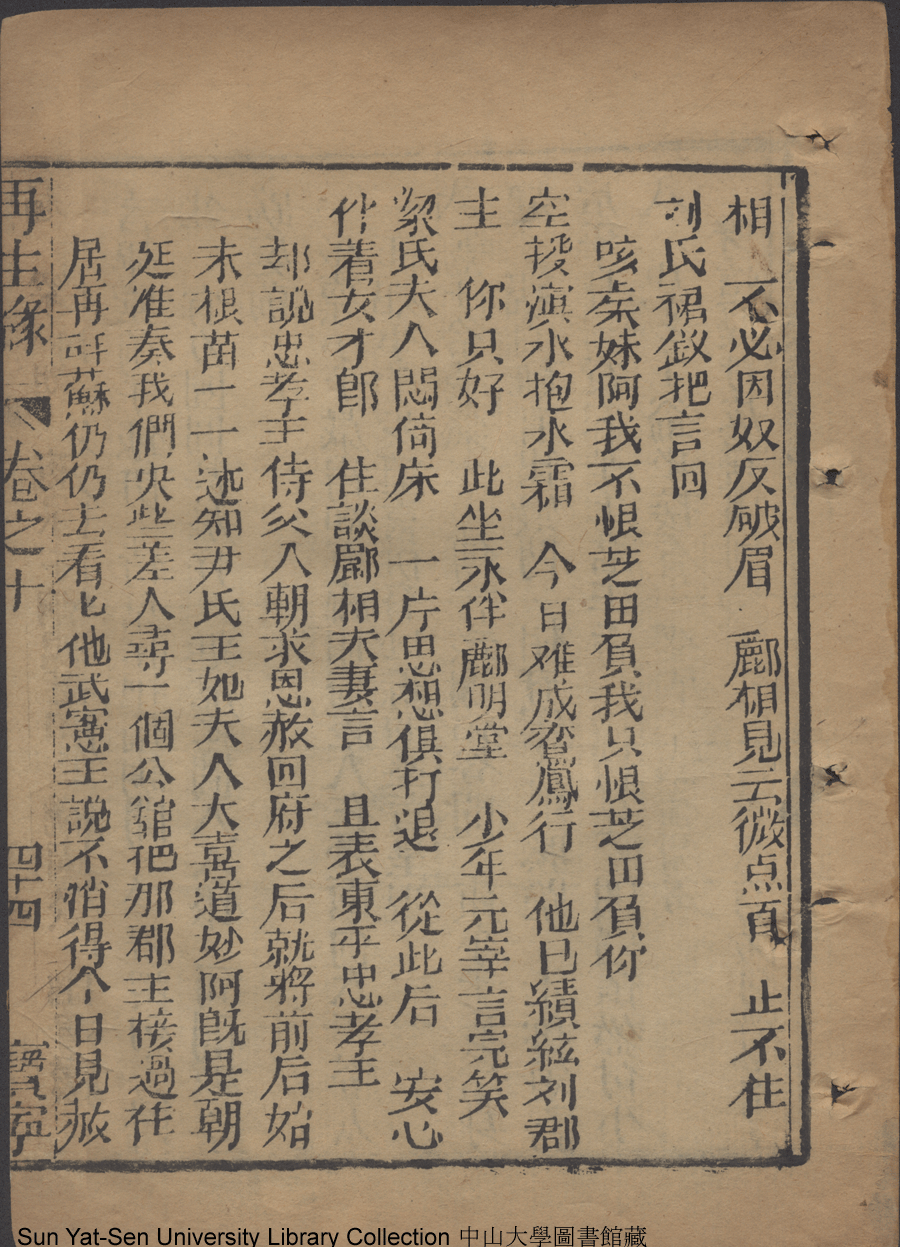 相　不必因奴反破眉　酈相見云微点頁　止不住
刘氏裙釵把言回
咳柔妹阿我不恨芝田負我只恨芝田負你
空投滇水抱氷霜　今日难成鸾鳳行　他已續絃刘郡
主　你只好此坐永伴酈明堂　少年元宰言完笑
梁氏夫人悶倚床　一片思想俱打退　從此后　安心
伴着女才郎　住談酈相夫妻言　且表東平忠孝王
却說忠孝王侍父入朝求恩赦回府之后就將前后始
未根苗一一述知尹氏王妃夫人大喜道妙阿既是朝
廷准奏我們央些差人尋一個公舘把那郡主接過住
居再訝蘇仍仍去看匕他武憲王說不消得今日見赦
再生緣　卷之十　四十四　寶寧
Sun Yat-Sen University Library Collection 中山大學圖書館藏